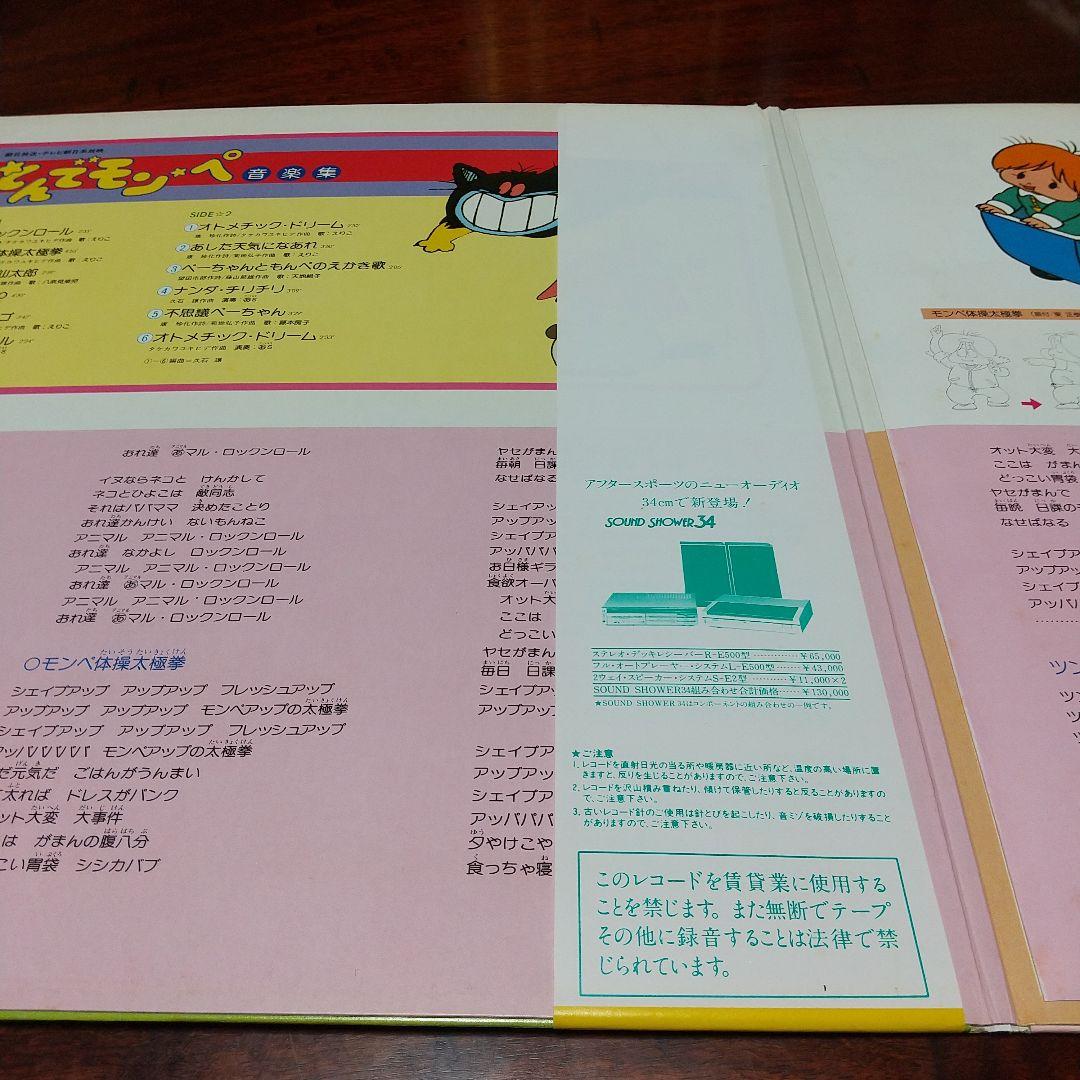 朝日放送・テレビ朝日系放映
とんでモン・ペ 音楽集
ックンロール
体操太極拳
山太郎
ゴ
ル
SIDE☆2
①オトメチック・ドリーム
②あした天気になあれ
③ペーちゃんともんぺのえかき歌
④ナンダ・チリチリ
久石 譲作曲 演奏:
⑤不思議ペーちゃん
⑥オトメチック・ドリーム
タケカワユキヒデ作曲
①〜⑥編曲=久石 譲
モンペ体操太極拳
おれ達 あマル・ロックンロール
イヌならネコと けんかして
ネコとひよこは 敵同志
それはパパママ 決めたことり
おれ達かんけい ないもんねこ
アニマル アニマル・ロックンロール
おれ達 なかよし ロックンロール
アニマル アニマル・ロックンロール
おれ達 あマル・ロックンロール
アニマル アニマル・ロックンロール
おれ達 あマル・ロックンロール
○モンペ体操太極拳
シェイプアップ アップアップ フレッシュアップ
アップアップ アップアップ モンペアップの太極拳
シェイプアップ アップアップ フレッシュアップ
アッパパパパパ モンペアップの太極拳
だ元気だ ごはんがうんまい
太れば ドレスがパンク
ット大変 大事件
は がまんの腹八分
こい胃袋 シシカバブ
ヤセがまん
毎朝 日課
なせばなる
シェイプア
アップアッ
シェイプア
アッパパパ
お日様ギラ
食欲オーバ
オット大
ここは
どっこい
ヤセがまん
毎日 日課
シェイプア
アップアッ
シェイプア
アップアップ
シェイプア
アッパパパ
夕やけこや
食っちゃ寝
アフタースポーツのニューオーディオ
34cmで新登場!
SOUND SHOWER 34
ステレオ・デッキレシーバーR-E500型 ¥65,000
フル・オートプレーヤー・システムL-E500型 ¥43,000
2ウェイ・スピーカー・システムS-E2型 ¥11,000×2
SOUND SHOWER34組み合わせ合計価格 ¥130,000
★SOUND SHOWER 34はコンポーネントの組み合わせの一例です。
★ご注意
1.レコードを直射日光の当る所や暖房器に近い所など、温度の高い場所に置
きますと、反りを生じることがありますので、ご注意下さい。
2.レコードを沢山積み重ねたり、傾けて保管したりすると反ることがありますの
で、ご注意下さい。
3.古いレコード針のご使用は針とびを起こしたり、音ミゾを破損したりすること
がありますので、ご注意下さい。
このレコードを賃貸業に使用する
ことを禁じます。また無断でテープ
その他に録音することは法律で禁
じられています。
オット大変 大
ここは がまん
どっこい胃袋
ヤセがまんで
毎晩 日課の
なせばなる
シェイプア
アップアッ
シェイプア
アッパパ
ツン